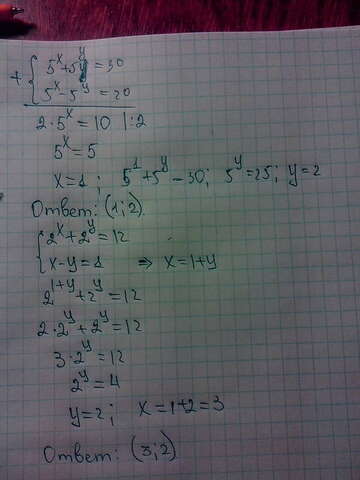 + { 5^x+5^y = 30
5^x-5^y = 20
2·5^x = 10 |:2
5^x = 5
x=1 ; 5^1+5^y = 30; 5^y=25; y=2
Ответ: (1;2)
{ 2^x+2^y = 12
x-y=1 ⇒ x=1+y
2^(1+y)+2^y = 12
2·2^y+2^y = 12
3·2^y = 12
2^y = 4
y=2 ; x=1+2=3
Ответ: (3;2)